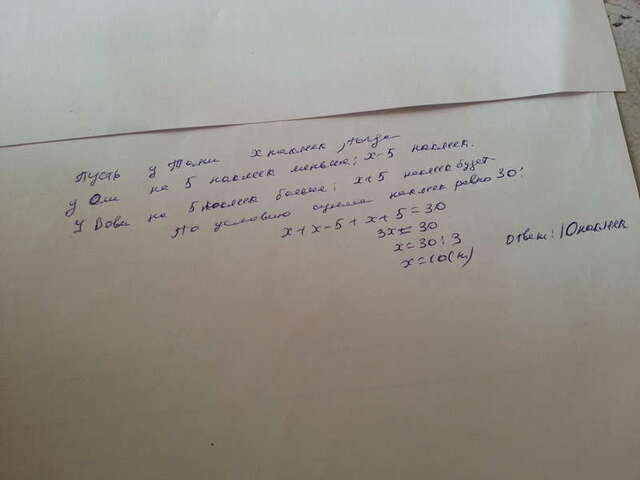 Пусть у Тани x наклеек, тогда
у Оли на 5 наклеек меньше: x-5 наклеек.
У Вовы на 5 наклеек больше: x+5 наклеек будет
По условию сумма наклеек равно 30:
x+x-5+x+5=30
3x=30
x=30:3
x=10(н)
Ответ: 10 наклеек